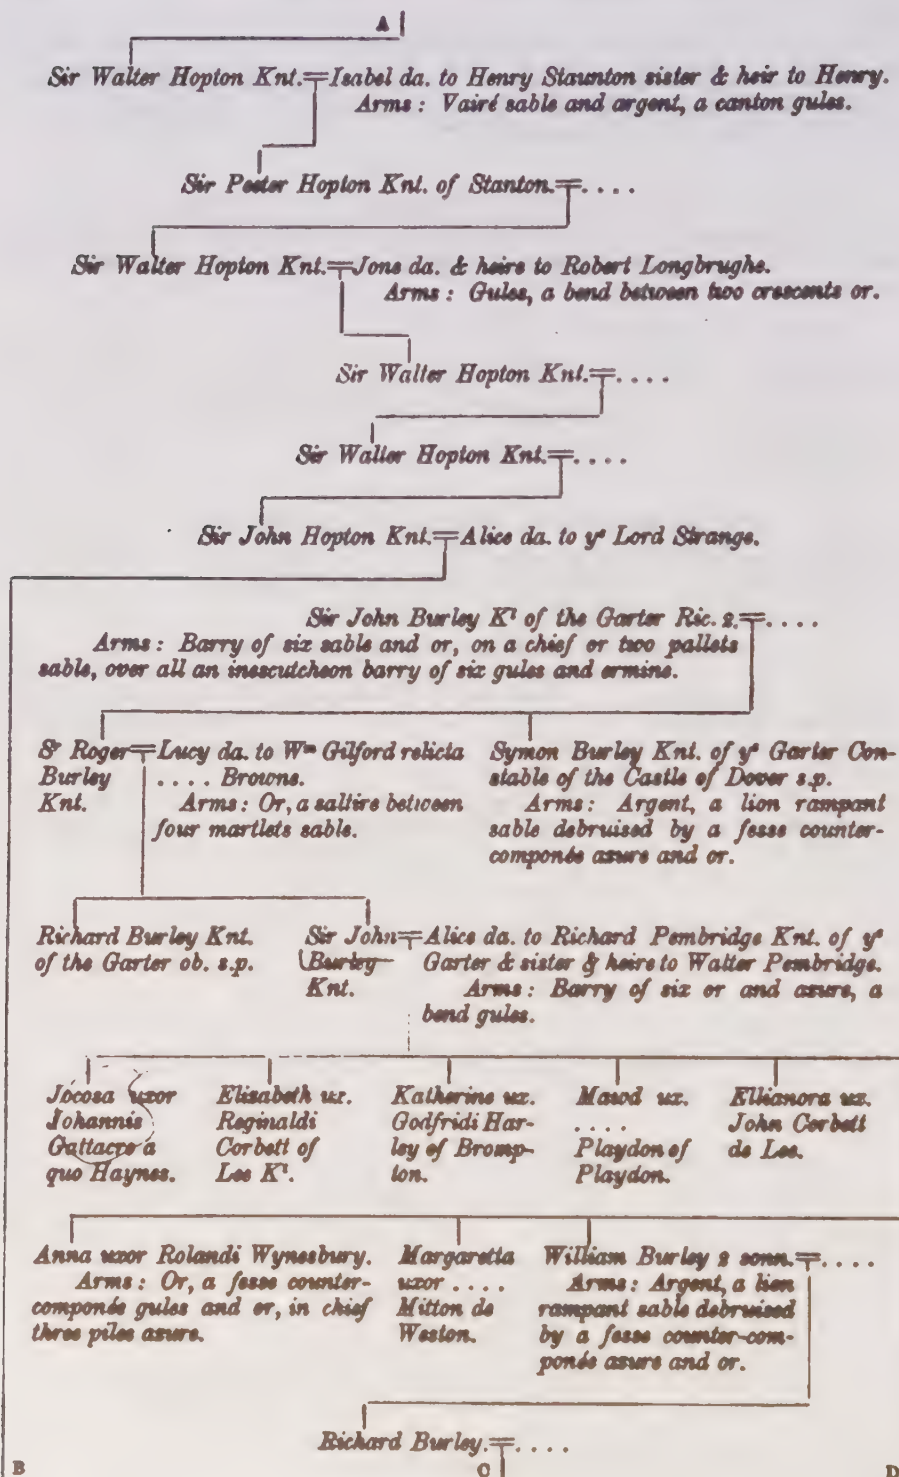 A
Sir Walter Hopton Knt. = Isabel da. to Henry Staunton sister & heir to Henry.
Arms: Vairé sable and argent, a canton gules.
Sir Peeter Hopton Knt. of Stanton. = ....
Sir Walter Hopton Knt. = Jone da. & heire to Robert Longbrughe.
Arms: Gules, a bend between two crescents or.
Sir Walter Hopton Knt. = ....
Sir Walter Hopton Knt. = ....
Sir John Hopton Knt. = Alice da. to yᵉ Lord Strange.
Sir John Burley Kᵗ of the Garter Ric. 2. = ....
Arms: Barry of six sable and or, on a chief or two pallets
sable, over all an inescutcheon barry of six gules and ermine.
Sʳ Roger
Burley
Knt.
= Lucy da. to Wᵐ Gilford relicta
.... Browne.
Arms: Or, a saltire between
four martlets sable.
Symon Burley Knt. of yᵉ Garter Con-
stable of the Castle of Dover s.p.
Arms: Argent, a lion rampant
sable debruised by a fesse counter-
componée azure and or.
Richard Burley Knt.
of the Garter ob. s.p.
Sir John
Burley
Knt.
= Alice da. to Richard Pembridge Knt. of yᵉ
Garter & sister & heire to Walter Pembridge.
Arms: Barry of six or and azure, a
bend gules.
Jocosa uxor
Johannis
Gattacre à
quo Haynes.
Elizabeth ux.
Reginaldi
Corbett of
Lee Kᵗ.
Katherine ux.
Godfridi Har-
ley of Bromp-
ton.
Mawd ux.
....
Playdon of
Playdon.
Ellianora ux.
John Corbett
de Lee.
Anna uxor Rolandi Wynesbury.
Arms: Or, a fesse counter-
componée gules and or, in chief
three piles azure.
Margaretta
uxor ....
Mitton de
Weston.
William Burley 2 sonn. = ....
Arms: Argent, a lion
rampant sable debruised
by a fesse counter-com-
ponée azure and or.
Richard Burley. = ....
B C D